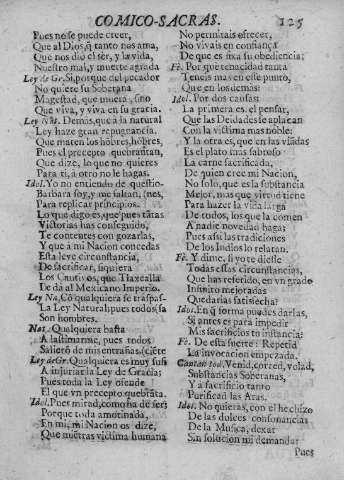 COMICO-SACRAS. 125
Pues no se puede creer,
Que al Dios, q̃ tanto nos ama,
Que nos dió el sér, y la vida,
Nuestro mal, y muerte agrada
Ley de Gr. Si, porque del pecador
No quiere su Soberana
Magestad, que muera, sino
Que viva, y viva en su gracia.
Ley Nat. Demàs, que à la natural
Ley haze gran repugnancia,
Que maten los hõbres, hõbres,
Pues el precepto quebrantan,
Que dize, lo que no quieres
Para ti, à otro no le hagas.
Idol. Yo no entiendo de questio-
Barbara soy, y me faltan, (nes,
Para replicar principios.
Lo que digo es, que pues tãtas
Victorias has conseguido,
Te contentes con gozarlas,
Y que à mi Nacion concedas
Esta leve circunstancia,
De sacrificar, siquiera
Los Cautivos, que Tlaxcalla
Le da al Mexicano Imperio.
Ley Na. Cõ qualquiera se traspas-
La Ley Natural; pues todos, sa
Son hombres.
Nat. Qualquiera basta
A lastimarme, pues todos
Salierõ de mis entrañas. (cete
Ley de Gr. Qualquiera es muy sufi
A injuriar la Ley de Gracia;
Pues toda la Ley ofende
El que vn precepto quebrãta.
Idol. Pues mirad, como ha de ser;
Porque toda amotinada,
En mi, mi Nacion os dize,
Que mietras victima humana
No permitais ofrecer,
No vivais en confiança
De que es fixa su obediencia;
Fè. Por què tenacidad tanta
Teneis mas en este punto,
Que en los demás?
Idol. Por dos causas:
La primera es, el pensar,
Que las Deidades se aplacan
Con la victima mas noble:
Y la otra es, que en las viãdas
Es el plato mas sabroso
La carne sacrificada,
De quien cree mi Nacion,
No solo, que es la substancia
Mejor, mas que virtud tiene
Para hazer la vida larga
De todos, los que la comen
A nadie novedad haga;
Pues assi las tradiciones
De los Indios lo relatan.
Fè. Y dime, si yo te diesse
Todas essas circunstancias,
Que has referido, en vn grado
Infinito mejoradas
Quedarias satisfecha?
Idol. En q̃ forma puedes darlas,
Si antes es para impedir
Mis sacrificios tu instancia;
Fè. De esta suerte: Repetid
La invocacion empezada,
Cantan tod. Venid, corred, volad,
Substancias Soberanas,
Y a sacrificio tanto
Purificad las Aras.
Idol. No quieras, con el hechizo
De las dulces consonancias
De la Musica, dexar
Sin solucion mi demanda:
Pues